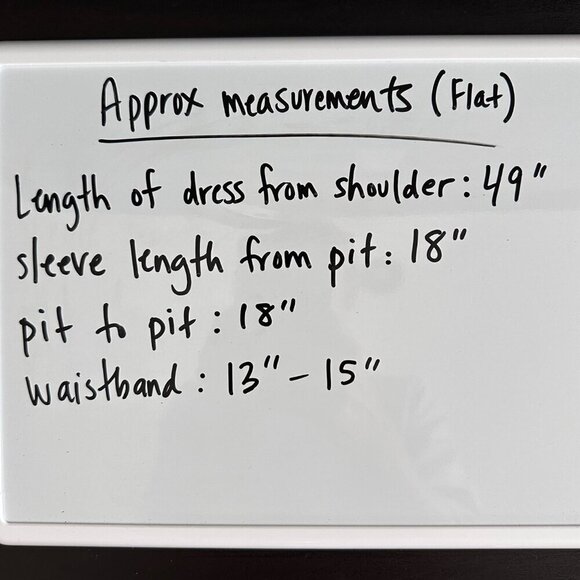 Approx measurements (Flat)
Length of dress from shoulder: 49"
sleeve length from pit: 18"
pit to pit: 18"
waistband: 13" - 15"